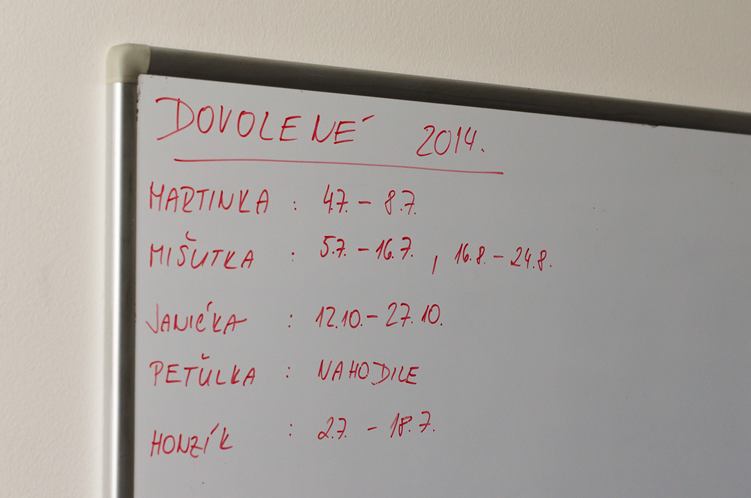 DOVOLENÉ 2014.
MARTINKA : 4.7. – 8.7.
MIŠUTKA : 5.7. – 16.7. , 16.8. – 24.8.
JANIČKA : 12.10. – 27.10.
PEŤULKA : NAHODILE
HONZÍK : 2.7. – 18.7.